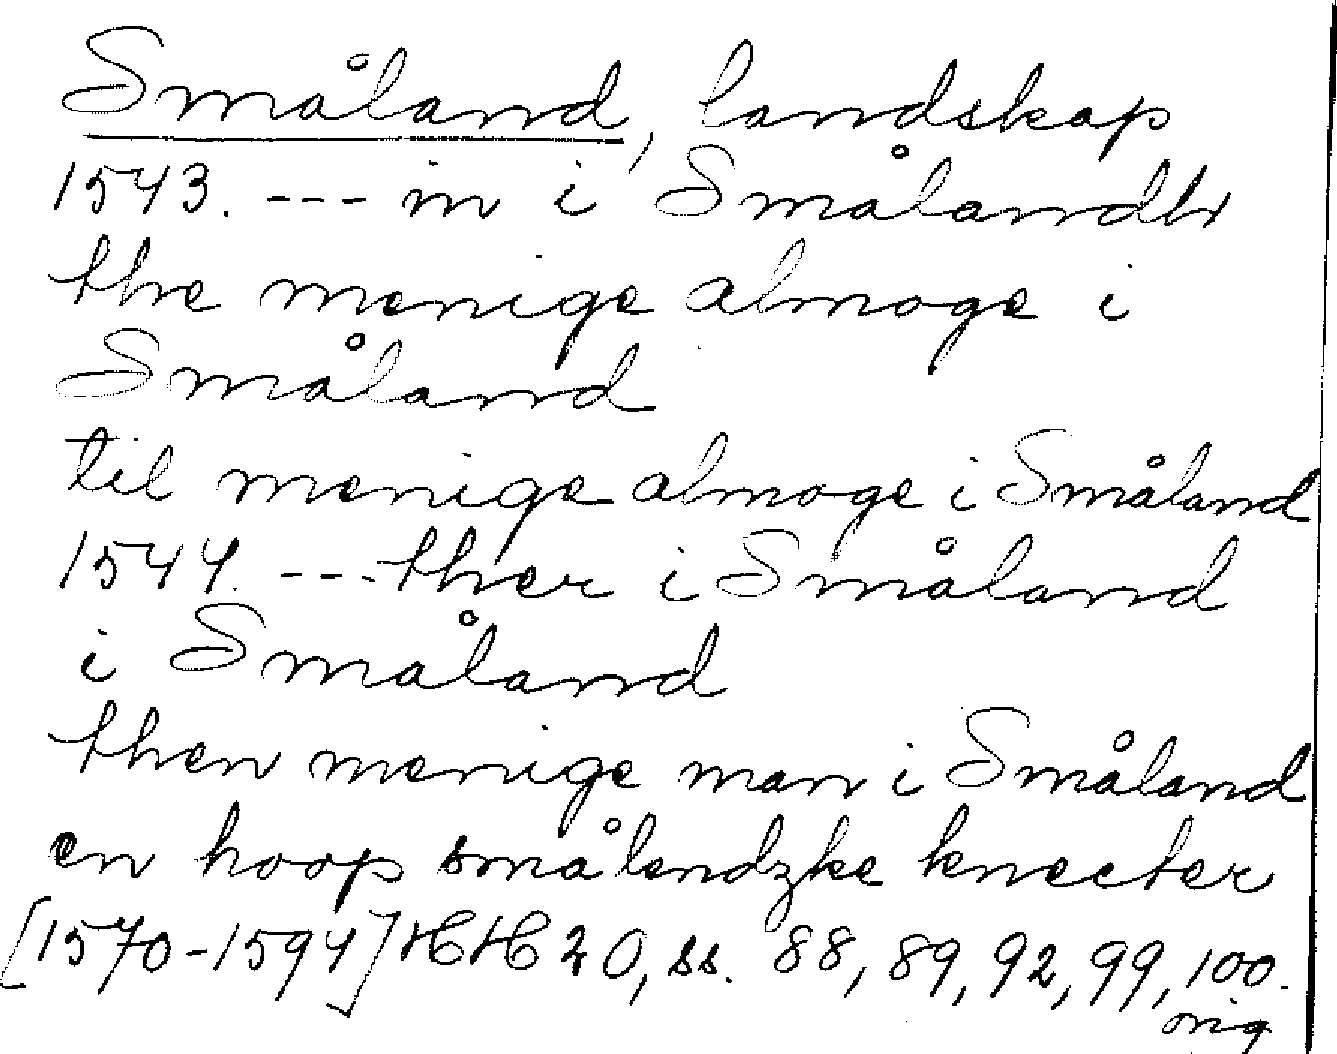 Småland, landskap
1543. --- in i Smålandh
the menige almoge i
Småland
til menige almoge i Småland
1544. --- ther i Småland
i Småland
then menige man i Småland
en hoop smålendzke knecter
[1570-1594] HH 20, ss. 88, 89, 92, 99, 100.
orig